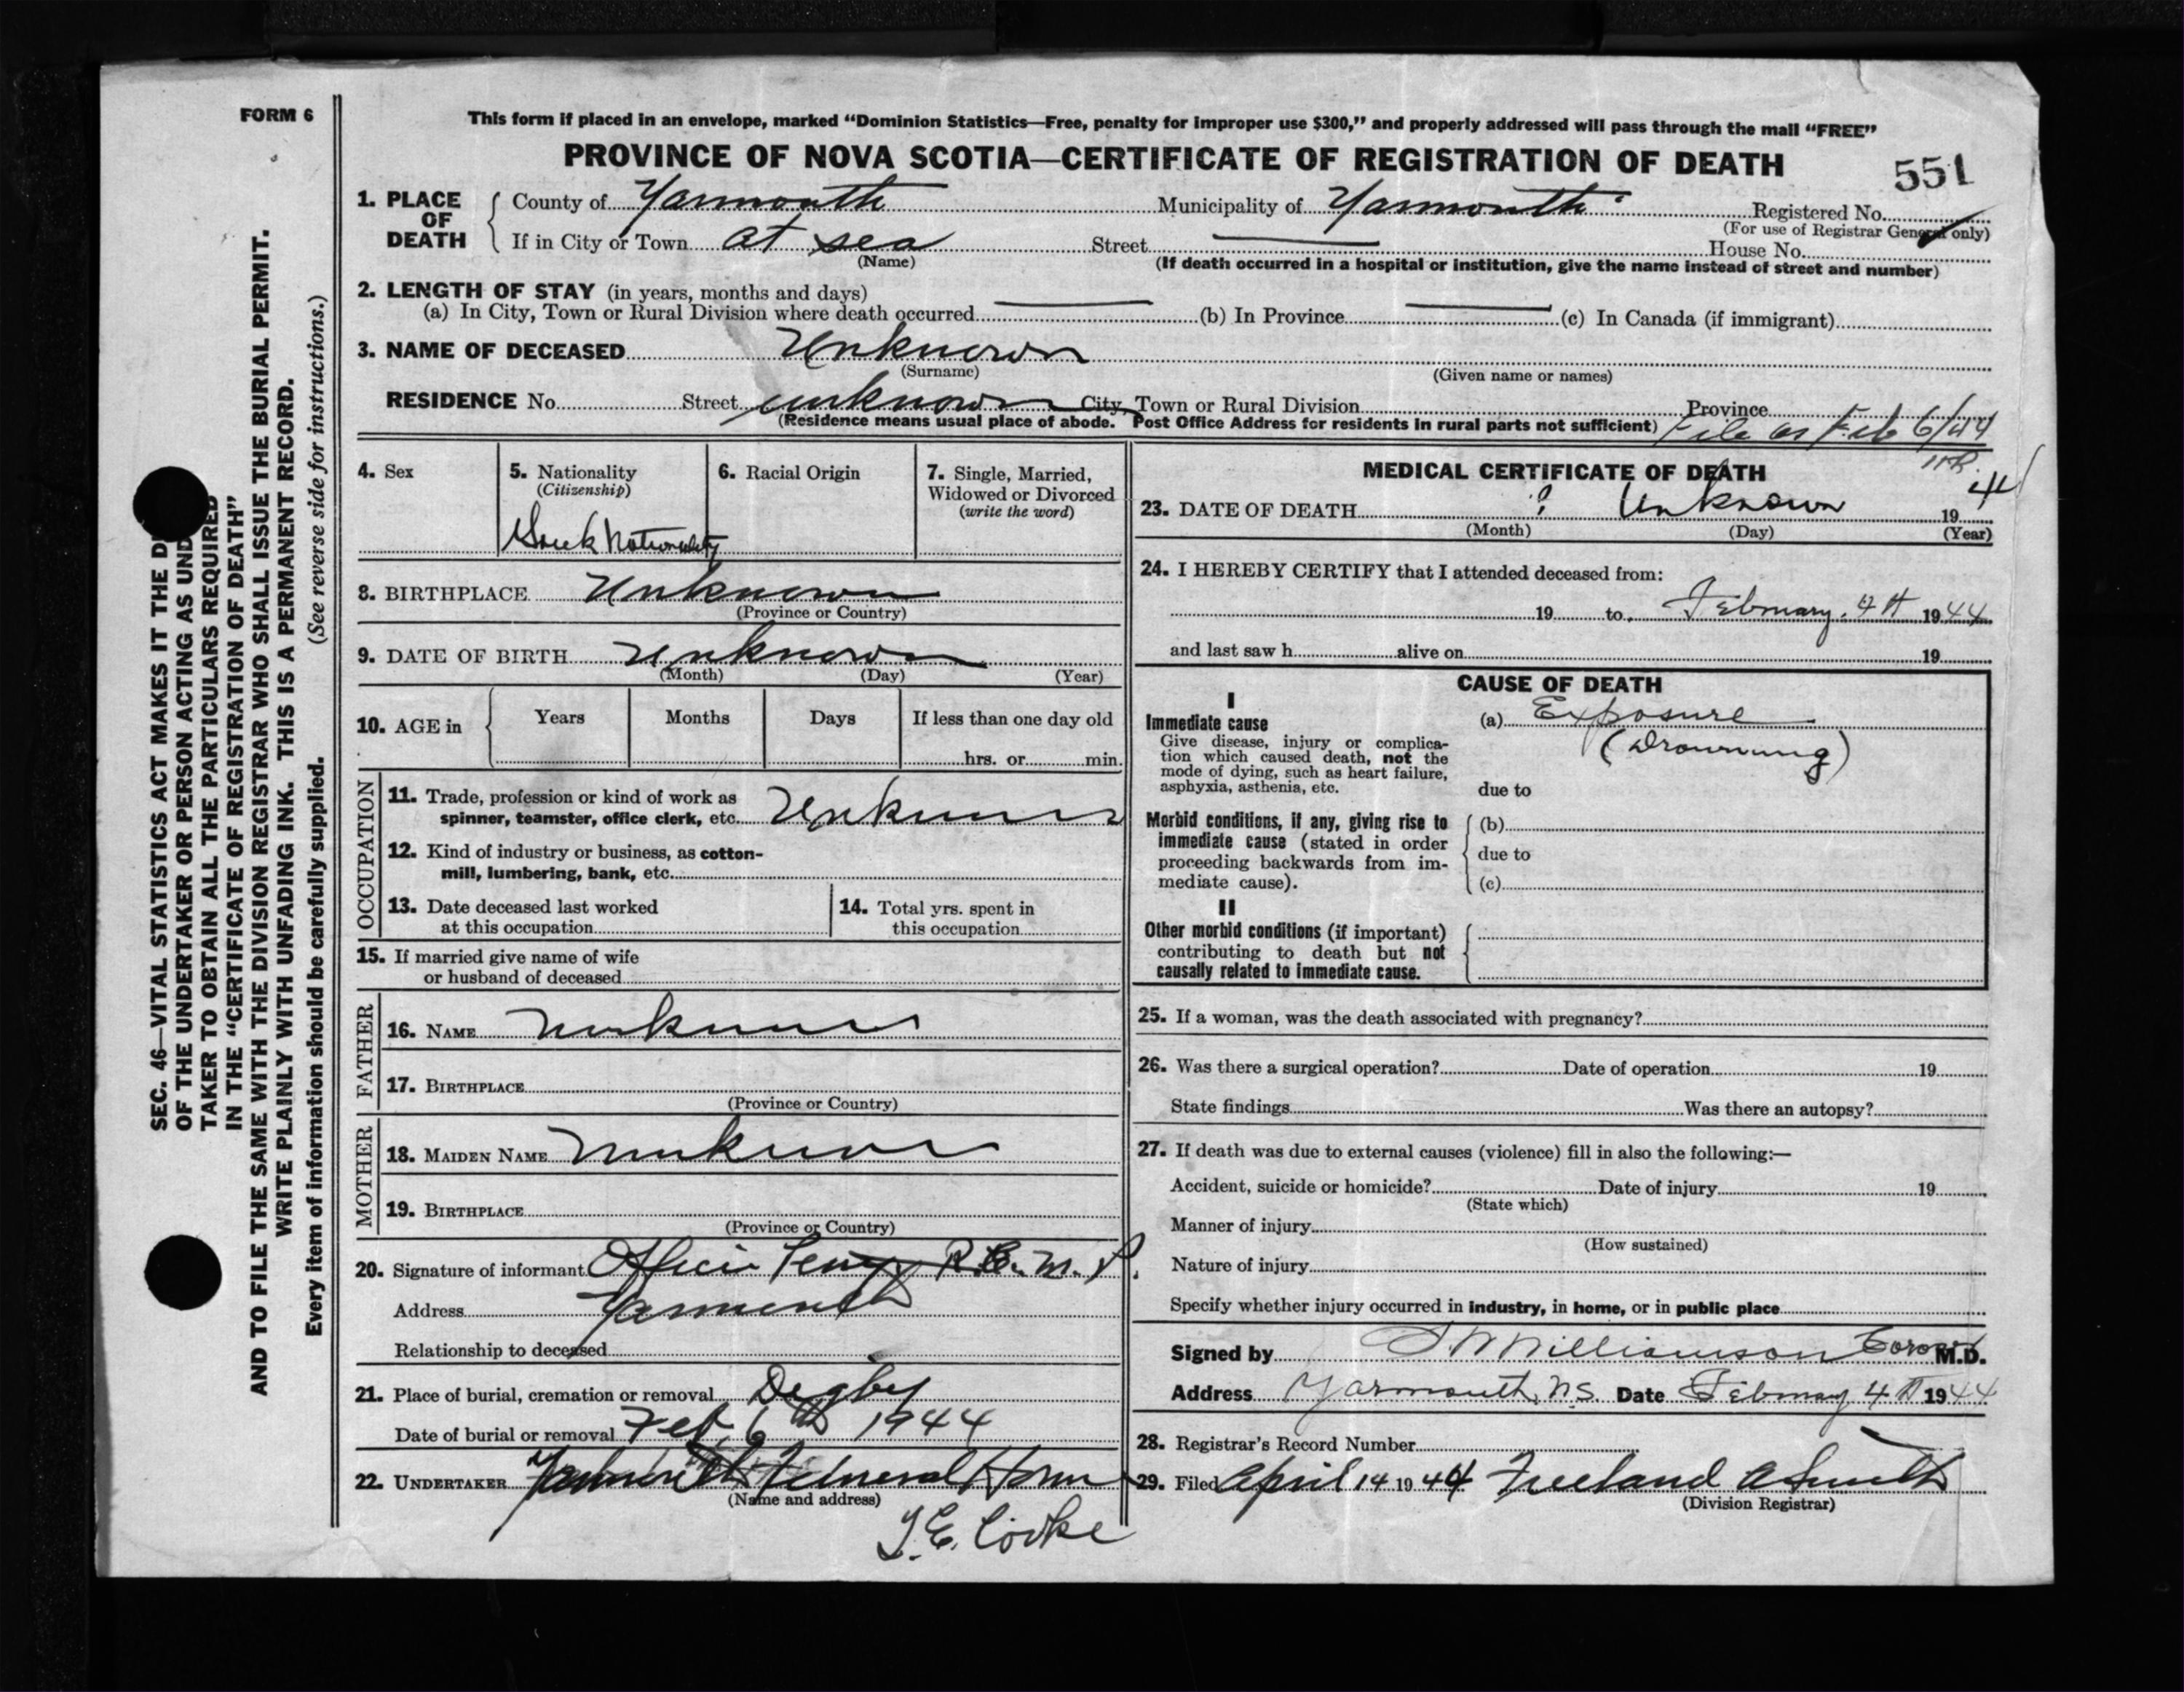 FORM 6
SEC. 46—VITAL STATISTICS ACT MAKES IT THE D
OF THE UNDERTAKER OR PERSON ACTING AS UND
TAKER TO OBTAIN ALL THE PARTICULARS REQUIRED
IN THE "CERTIFICATE OF REGISTRATION OF DEATH"
AND TO FILE THE SAME WITH THE DIVISION REGISTRAR WHO SHALL ISSUE THE BURIAL PERMIT.
WRITE PLAINLY WITH UNFADING INK. THIS IS A PERMANENT RECORD.
Every item of information should be carefully supplied. (See reverse side for instructions.)
This form if placed in an envelope, marked "Dominion Statistics—Free, penalty for improper use $300," and properly addressed will pass through the mail "FREE"
PROVINCE OF NOVA SCOTIA—CERTIFICATE OF REGISTRATION OF DEATH
551
1. PLACE OF DEATH County of Yarmouth Municipality of Yarmouth Registered No.
(For use of Registrar General only)
If in City or Town at sea Street House No.
(Name) (If death occurred in a hospital or institution, give the name instead of street and number)
2. LENGTH OF STAY (in years, months and days)
(a) In City, Town or Rural Division where death occurred (b) In Province (c) In Canada (if immigrant)
3. NAME OF DECEASED Unknown
(Surname) (Given name or names)
RESIDENCE No. Street unknown City, Town or Rural Division Province
(Residence means usual place of abode. Post Office Address for residents in rural parts not sufficient) File as Feb 6/44
4. Sex
5. Nationality
(Citizenship)
Nationality
6. Racial Origin
7. Single, Married,
Widowed or Divorced
(write the word)
8. BIRTHPLACE Unknown
(Province or Country)
9. DATE OF BIRTH Unknown
(Month) (Day) (Year)
10. AGE in Years Months Days If less than one day old
hrs. or min.
OCCUPATION
11. Trade, profession or kind of work as
spinner, teamster, office clerk, etc. Unknown
12. Kind of industry or business, as cotton-
mill, lumbering, bank, etc.
13. Date deceased last worked
at this occupation
14. Total yrs. spent in
this occupation
15. If married give name of wife
or husband of deceased
FATHER
16. NAME Unknown
17. BIRTHPLACE
(Province or Country)
MOTHER
18. MAIDEN NAME Unknown
19. BIRTHPLACE
(Province or Country)
20. Signature of informant Officer R.C.M.P.
Address Yarmouth
Relationship to deceased
21. Place of burial, cremation or removal Digby
Date of burial or removal Feb. 6th 1944
22. UNDERTAKER Yarmouth Funeral Home
(Name and address)
MEDICAL CERTIFICATE OF DEATH
23. DATE OF DEATH ? Unknown 1944
(Month) (Day) (Year)
24. I HEREBY CERTIFY that I attended deceased from:
19 to February. 4th 1944
and last saw h alive on 19
CAUSE OF DEATH
I
Immediate cause
Give disease, injury or complica-
tion which caused death, not the
mode of dying, such as heart failure,
asphyxia, asthenia, etc.
(a) Exposure
(Drowning)
due to
Morbid conditions, if any, giving rise to
immediate cause (stated in order
proceeding backwards from im-
mediate cause).
(b)
due to
(c)
II
Other morbid conditions (if important)
contributing to death but not
causally related to immediate cause.
25. If a woman, was the death associated with pregnancy?
26. Was there a surgical operation? Date of operation 19
State findings Was there an autopsy?
27. If death was due to external causes (violence) fill in also the following:—
Accident, suicide or homicide? Date of injury 19
(State which)
Manner of injury
(How sustained)
Nature of injury
Specify whether injury occurred in industry, in home, or in public place
Signed by Williamson Coroner M.D.
Address Yarmouth, N.S. Date February 4th 1944
28. Registrar's Record Number
29. Filed April 14 1944 Freeland A Smith
(Division Registrar)